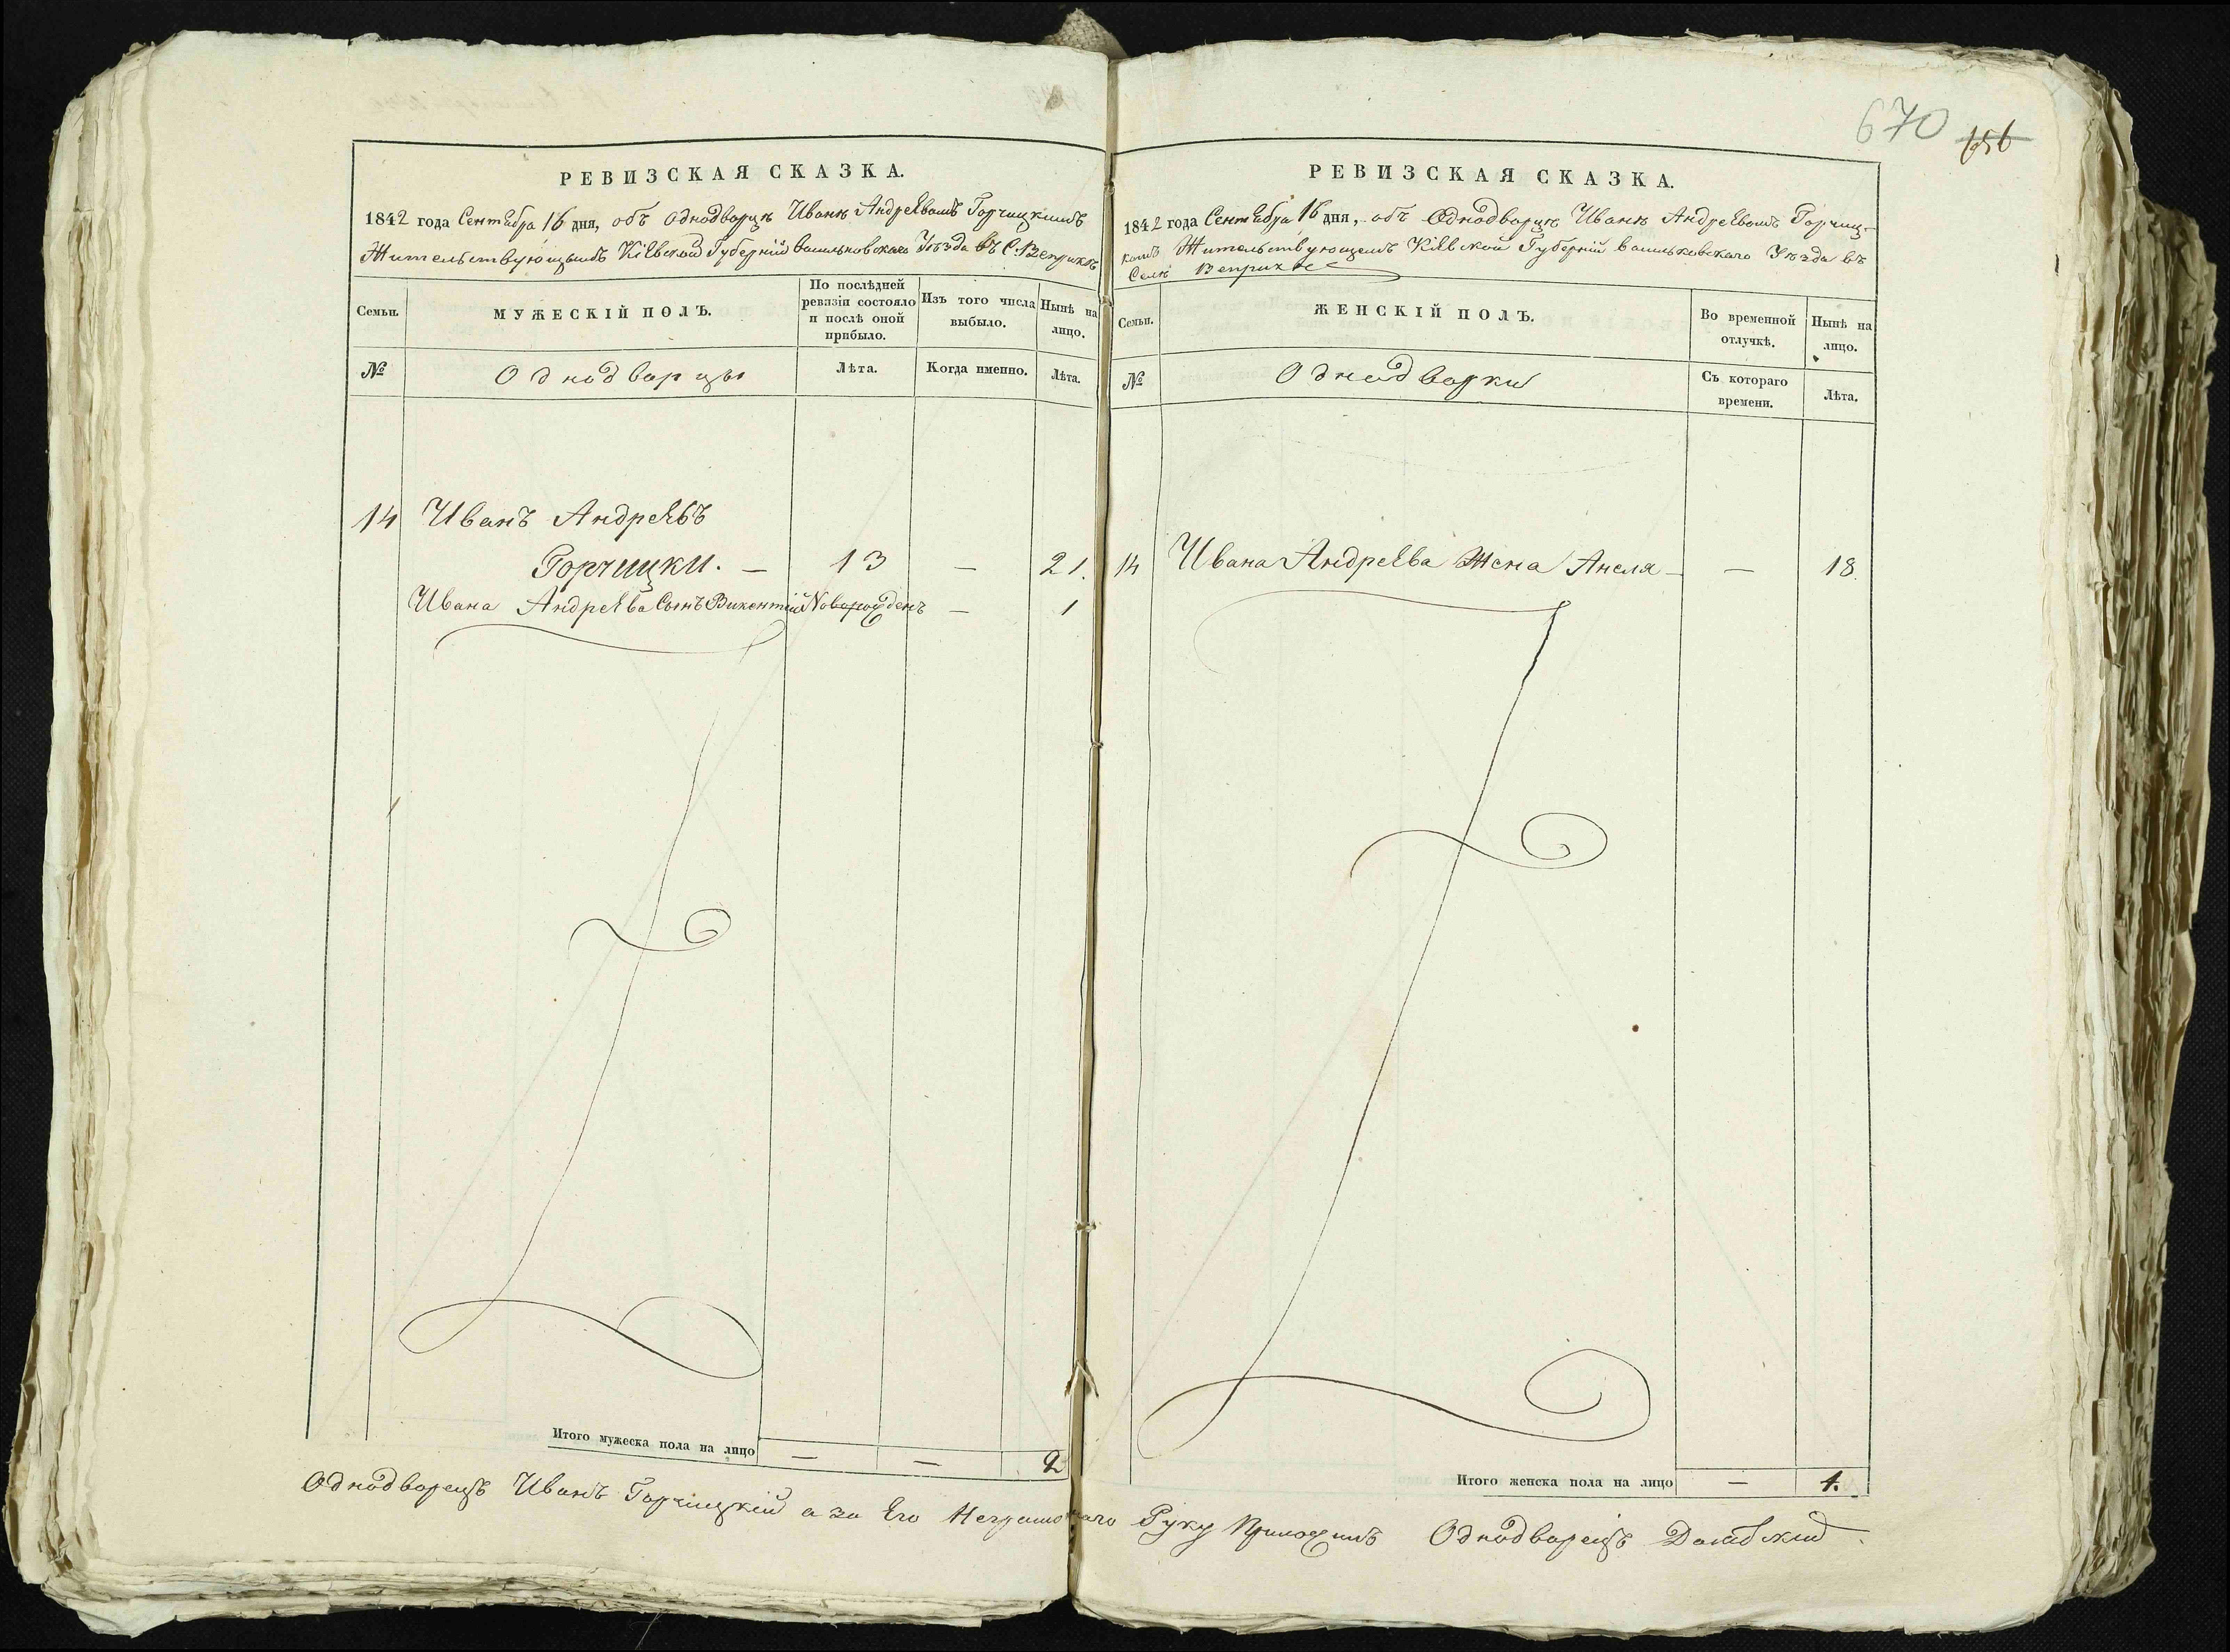 670 656
РЕВИЗСКАЯ СКАЗКА.
1842 года Сентебра 16 дня, объ однодворце Иване Андреевомъ Горчицкимъ
Жительствующымъ Кіевской Губерніи васильковскаго Уезда въ С. Веприке
Семьи.
МУЖЕСКІЙ ПОЛЪ.
По послѣдней ревизіи состояло и послѣ оной прибыло.
Изъ того числа выбыло.
Нынѣ на лицо.
№
Однодворцы
Лѣта.
Когда именно.
Лѣта.
14 Иванъ Андреевъ
Горчицки. — 13 — 21.
Ивана Андреева Сынъ Викентій Новорожденъ — 1
Итого мужеска пола на лицо — — 2
РЕВИЗСКАЯ СКАЗКА.
1842 года Сентебра 16 дня, объ Однодворце Иване Андреевомъ Горчиц-
комъ Жительствующемъ Кіевской Губерніи васильковскаго Уезда въ
Селе Веприке
Семьи.
ЖЕНСКІЙ ПОЛЪ.
Во временной отлучкѣ.
Нынѣ на лицо.
№
Однодворки
Съ котораго времени.
Лѣта.
14 Ивана Андреева Жена Анеля — — 18.
Итого женска пола на лицо — 1.
Однодворецъ Иванъ Горчицкій а за Его Неграмотнаго Руку Приложилъ Однодворецъ